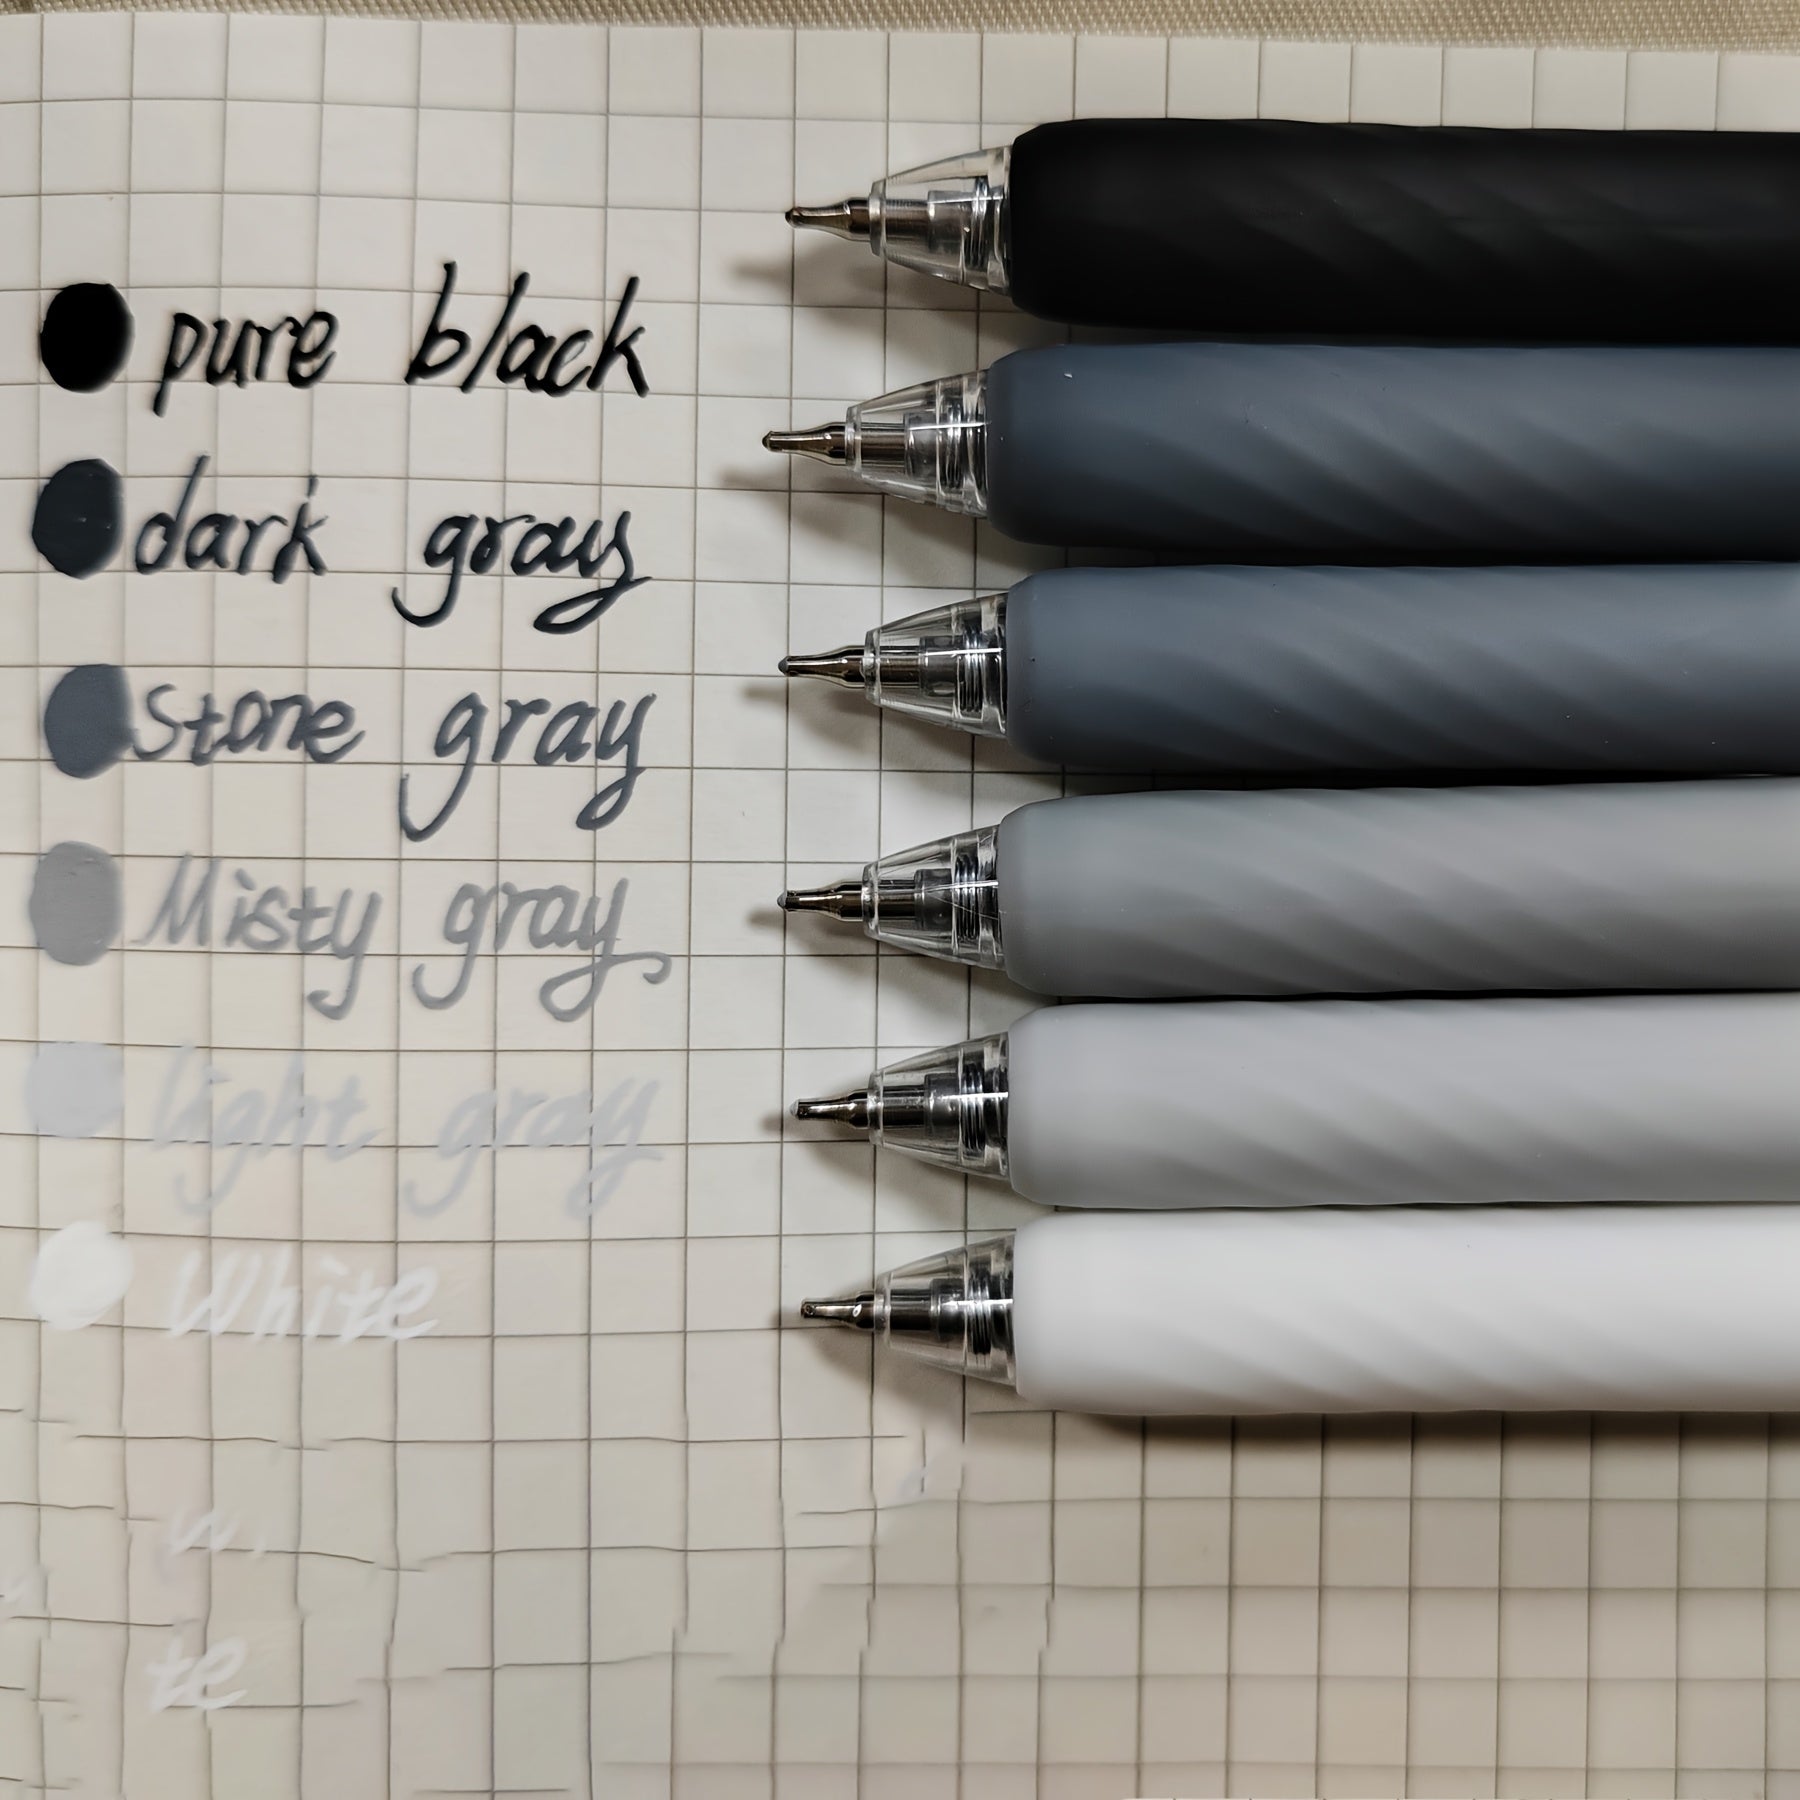 pure black
dark gray
Stone gray
Misty gray
light gray
White
te